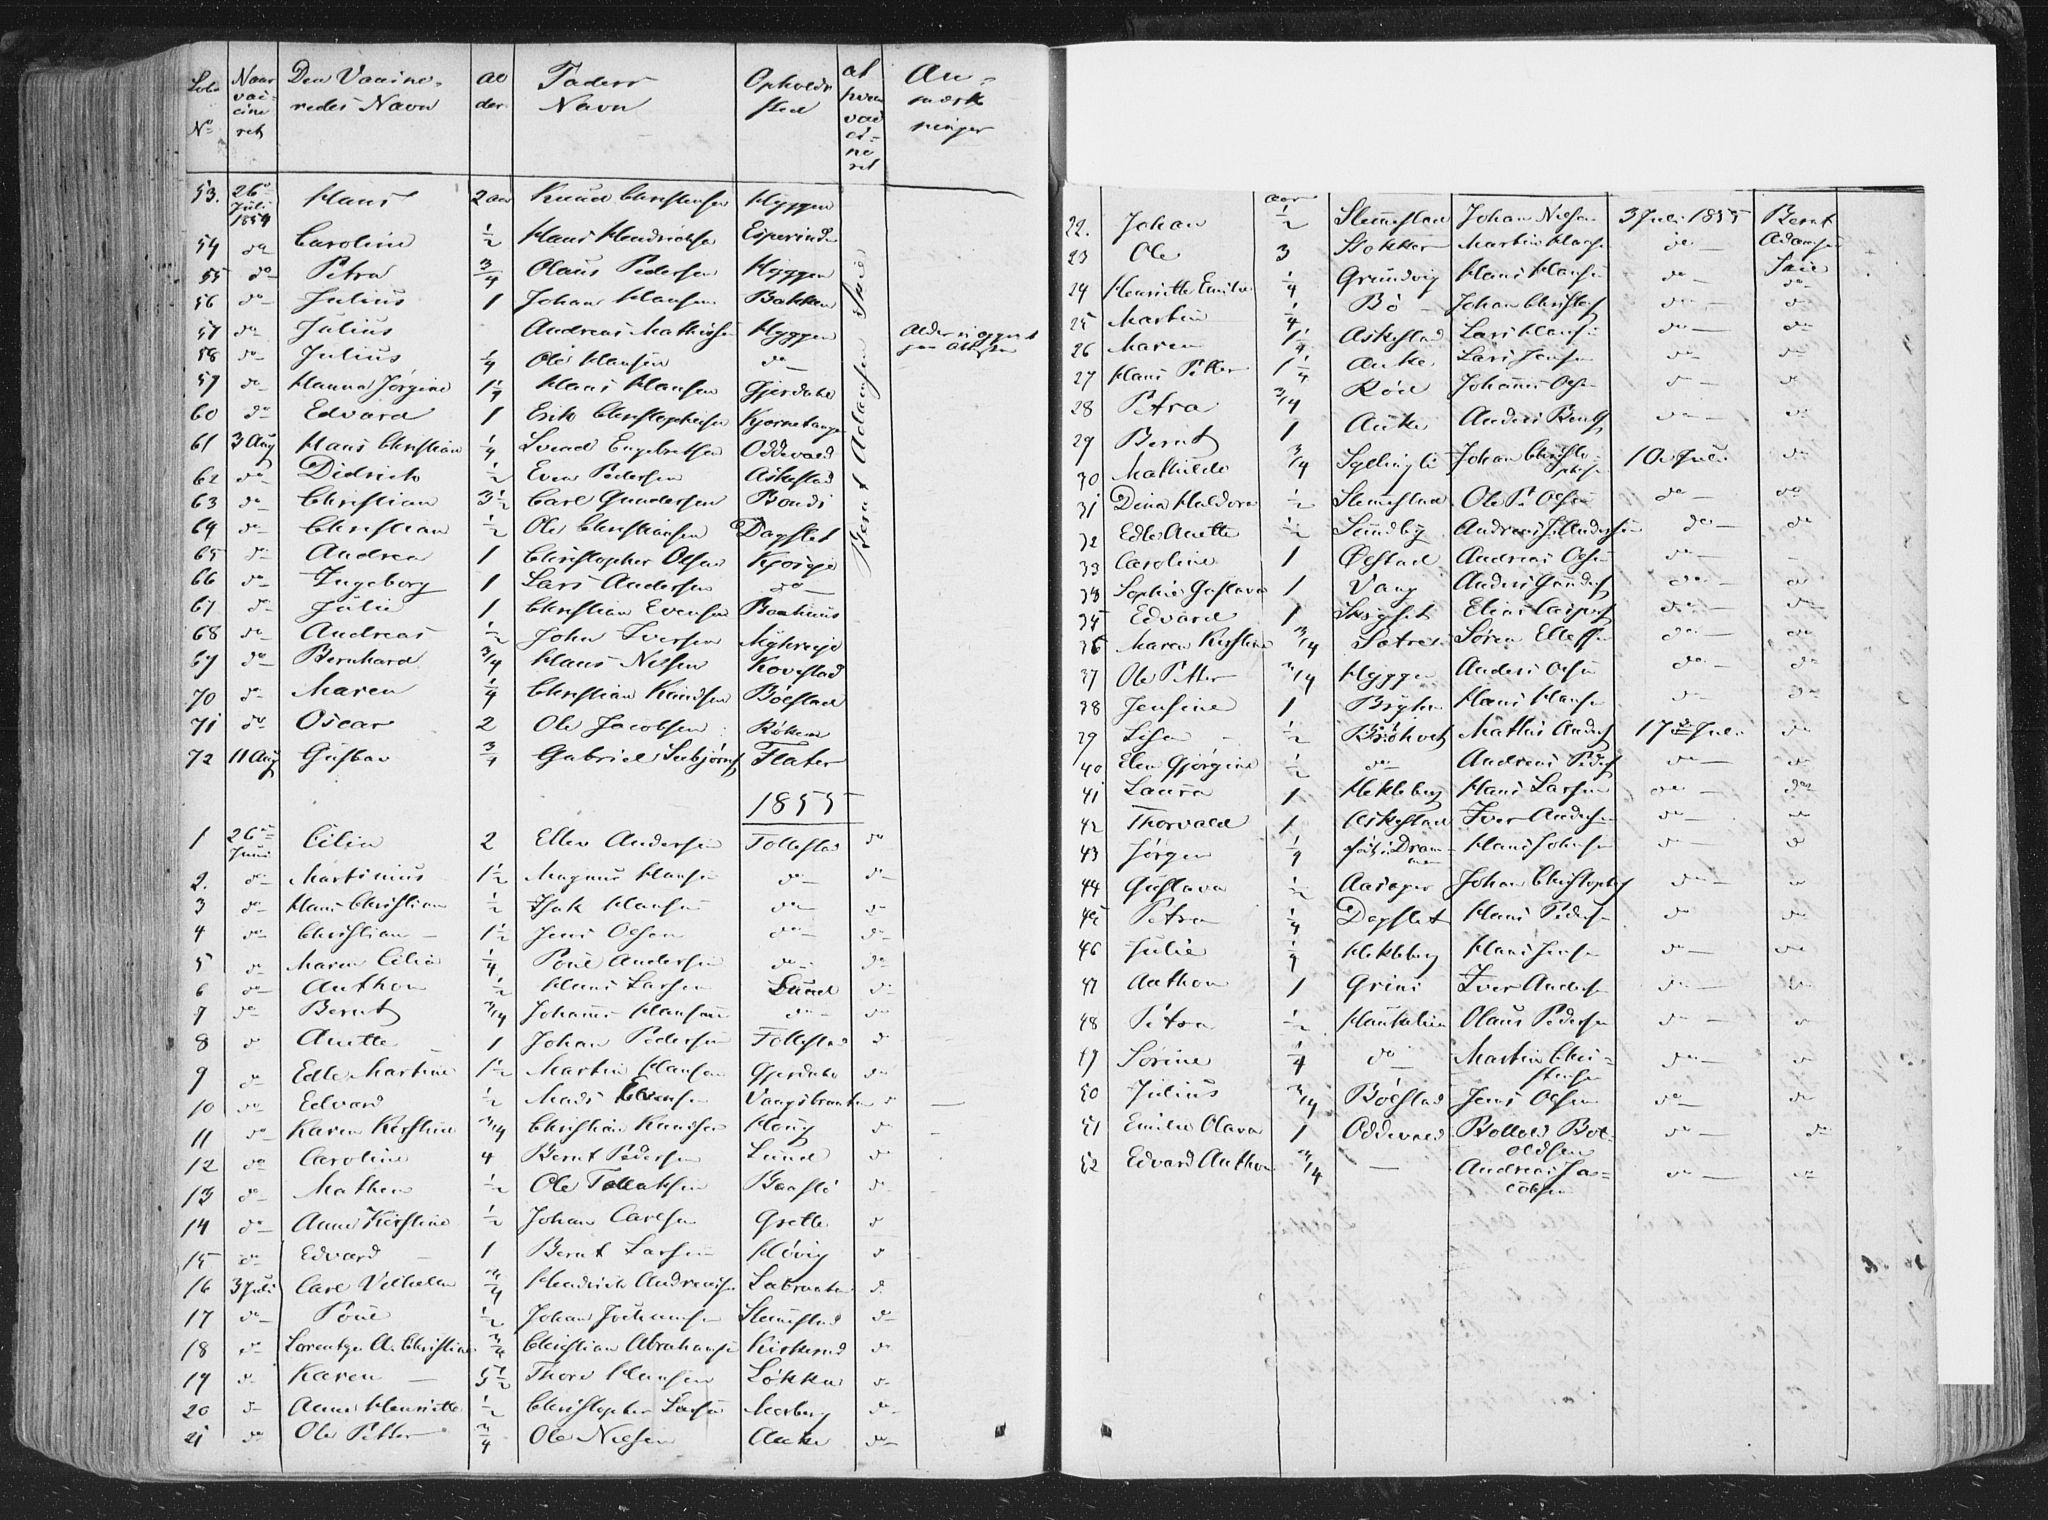 Løbe No | Naar vaccineret | Den Vaccineredes Navn | Alder | Faders Navn | Opholdssted | Af hvem vaccineret | Anmærkninger
53. | 26de Juli 1854 | Hans | 2 aar | Knud Christensen | Hyggen
54 | do | Caroline | 1/2 | Hans Hendrichsen | Esperinden
55 | do | Petra | 3/4 | Olaus Pedersen | Hyggen
56 | do | Julius | 1 | Johan Hansen | Bakken
57 | do | Julius | | Andreas Mathisen | Hyggen | | Alder ei opgivet
58 | do | Julius | 1/4 | Ole Hansen | do
59 | do | Hanna Jørgine | 1 1/4 | Hans Hansen | Gjerdahl
60 | do | Edvard | 1 | Erik Christophersen | Kjørnetangen
61 | 3 Aug | Hans Christian | 1/4 | Svend Engebretsen | Oddevald
62 | do | Didrich | 1/2 | Even Pedersen | Askestad
63 | do | Christian | 3 1/2 | Carl Gundersen | Bondi
64 | do | Christian | 1/2 | Ole Christiansen | Dagslet
65 | do | Andrea | 1 | Christopher Olsen | Kjosje
66 | do | Ingeborg | 1 | Lars Andersen | do
67 | do | Julie | 1 | Christian Evensen | Baahuus
68 | do | Andreas | 1/2 | John Iversen | Myhreje
69 | do | Bernhard | 3/4 | Hans Nilsen | Kovestad
70 | do | Maren | 1/4 | Christian Knudsen | Bölstad
71 | do | Oscar | 2 | Ole Jacobsen | Röken
72 | 11 Aug | Gustav | 3/4 | Gabriel Torbjörns | Flater
Bernt Adamsen Saie
1855
1 | 26de Juni | Cilia | 2 | Ellev Andersen | Follestad | do
2. | do | Martinius | 1 1/2 | Magnus Hansen | do | do
3 | do | Hans Christian | 1/2 | Isak Hansen | do | do
4 | do | Christian | 1 1/2 | Jens Olsen | do | do
5 | do | Maren Cilia | 1/4 | Poul Andersen | do | do
6 | do | Anthon | 1/2 | Hans Larsen | Lund | do
7 | do | Bernt | 3/4 | Johannes Hansen | do | do
8 | do | Anette | 1 | Johan Pedersen | Follestad | do
9 | do | Edle Martine | 1 1/2 | Martin Hansen | Gjerdahl | do
10 | do | Edvard | 1/2 | Mads Evensen | Vangsbraaten | do
11 | do | Karen Kirstine | 3/4 | Christian Knudsen | Houg | do
12 | do | Caroline | 4 | Bernt Pedersen | Lund | do
13 | do | Mathea | 1/2 | Ole Tollaksen | Baaslö | do
14 | do | Anne Kirstine | 1/2 | Johan Carlsen | Grette | do
15 | do | Edvard | 1 | Bernt Larsen | Hövig | do
16 | 3 Juli | Carl Vilhelm | 3/4 | Hendrich Andreasen | Labraaten | do
17 | do | Poul | 1/2 | Johan Jochumsen | Slemestad | do
18 | do | Lorentze A. Christine | 3/4 | Christian Abrahamsen | Kirkerud | do
19 | do | Karen | 5 1/2 | Thore Hansen | Løkka | do
20 | do | Anne Henriette | 1/2 | Christopher Larsen | Morberg | do
21 | do | Ole Petter | 3/4 | Ole Nilsen | Auke | do
22. | Johan | aar 1/2 | Slemestad | Johan Nilsen | 3 Juli 1855 | Bernt
23 | Ole | 3 | Stokker | Martin Hansen | do | Adamsen Saie
24 | Henriette Emilie | 1/4 | Grundvig | Hans Hansen | do | do
25 | Martin | 1/4 | Bö | Johan Christofs | do | do
26 | Maren | 1 1/4 | Askestad | Lars Hansen | do | do
27 | Hans Petter | 1 1/4 | Auke | Lars Jensen | do | do
28 | Petra | 3/4 | Röd | Johannes Ols | do
29 | Bernt | 1 | Auke | Anders Bents | do
30 | Mathilde | 3/4 | Syllingli | Johan Christophs | 10de Juli | do
31 | Dina Haldora | 1/2 | Slemestad | Ole P. Olsen | do | do
32 | Edle Anette | 1/2 | Sundby | Andreas J. Andersen | do | do
33 | Caroline | 1 | Ølstad | Andreas Olsen | do
34 | Sophie Gustava | 1 | Vang | Anders Gunders | do | do
35 | Edvard | 1 | | Elias Caspers | do | do
36 | Maren Kirstine | 3/4 | Sætre | Søren Ellefsen | do | do
37 | Ole Petter | 3/4 | Hyggen | Anders Olsen | do | do
38 | Jensine | 1 | | Hans Hansen | do | do
39 | Lisa | 1/2 | Bröholt | Mathis Anders | 17de Juli | do
40 | Elen Gjørgine | 1/2 | do | Andreas Peders | do | do
41 | Laura | 1 | Hekleberg | Hans Larsen | do | do
42 | Thorvald | 1 | Askestad | Iver Andersen | do | do
43 | Jørgen | 1/4 | født i Drammen | Hans Johnsen | do | do
44 | Gustava | 1/2 | Aaraper | Johan Christophs | do | do
45 | Petra | 1/4 | Dagslet | Hans Pedersen | do | do
46 | Julie | 1/4 | Hekleberg | Hans Jensen | do | do
47 | Anthon | 1 | Grini | Iver Andersen | do | do
48 | Petra | 1/2 | Haukelien | Olaus Pedersen | do | do
49 | Sørine | 1/4 | do | Martin Christensen | do | do
50 | Julius | 3/4 | Bölstad | Jens Olsen | do | do
51 | Emilie Olava | 1 | Oddevald | Bottold Botoldsen | do | do
52 | Edvard Anthon | 3/4 | — | Andreas Jacobsen | do | do